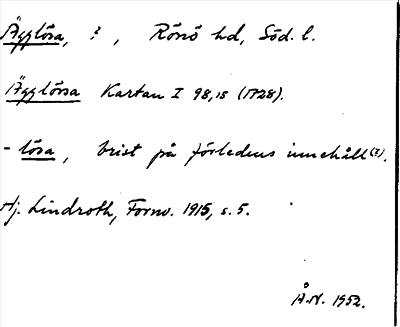 Ägglösa, ? , Rönö hd, Söd. l.
Ägglösa Kartan I 98,15 (1728).
- lösa, brist på förledens innehåll (?).
Hj. Lindroth, Fornv. 1915, s. 5.
Å.N. 1952.